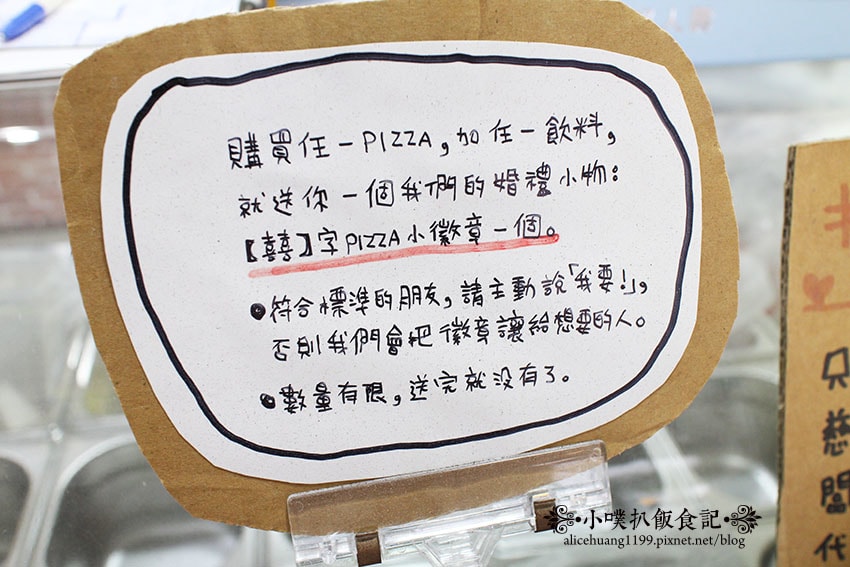 購買任一PIZZA,加任一飲料,
就送你一個我們的婚禮小物:
【囍】字PIZZA小徽章一個。
●符合標準的朋友,請主動說「我要!」,
否則我們會把徽章讓給想要的人。
●數量有限,送完就沒有了。
只
慈
闆
代
小噗扒飯食記
alicehuang1199.pixnet.net/blog